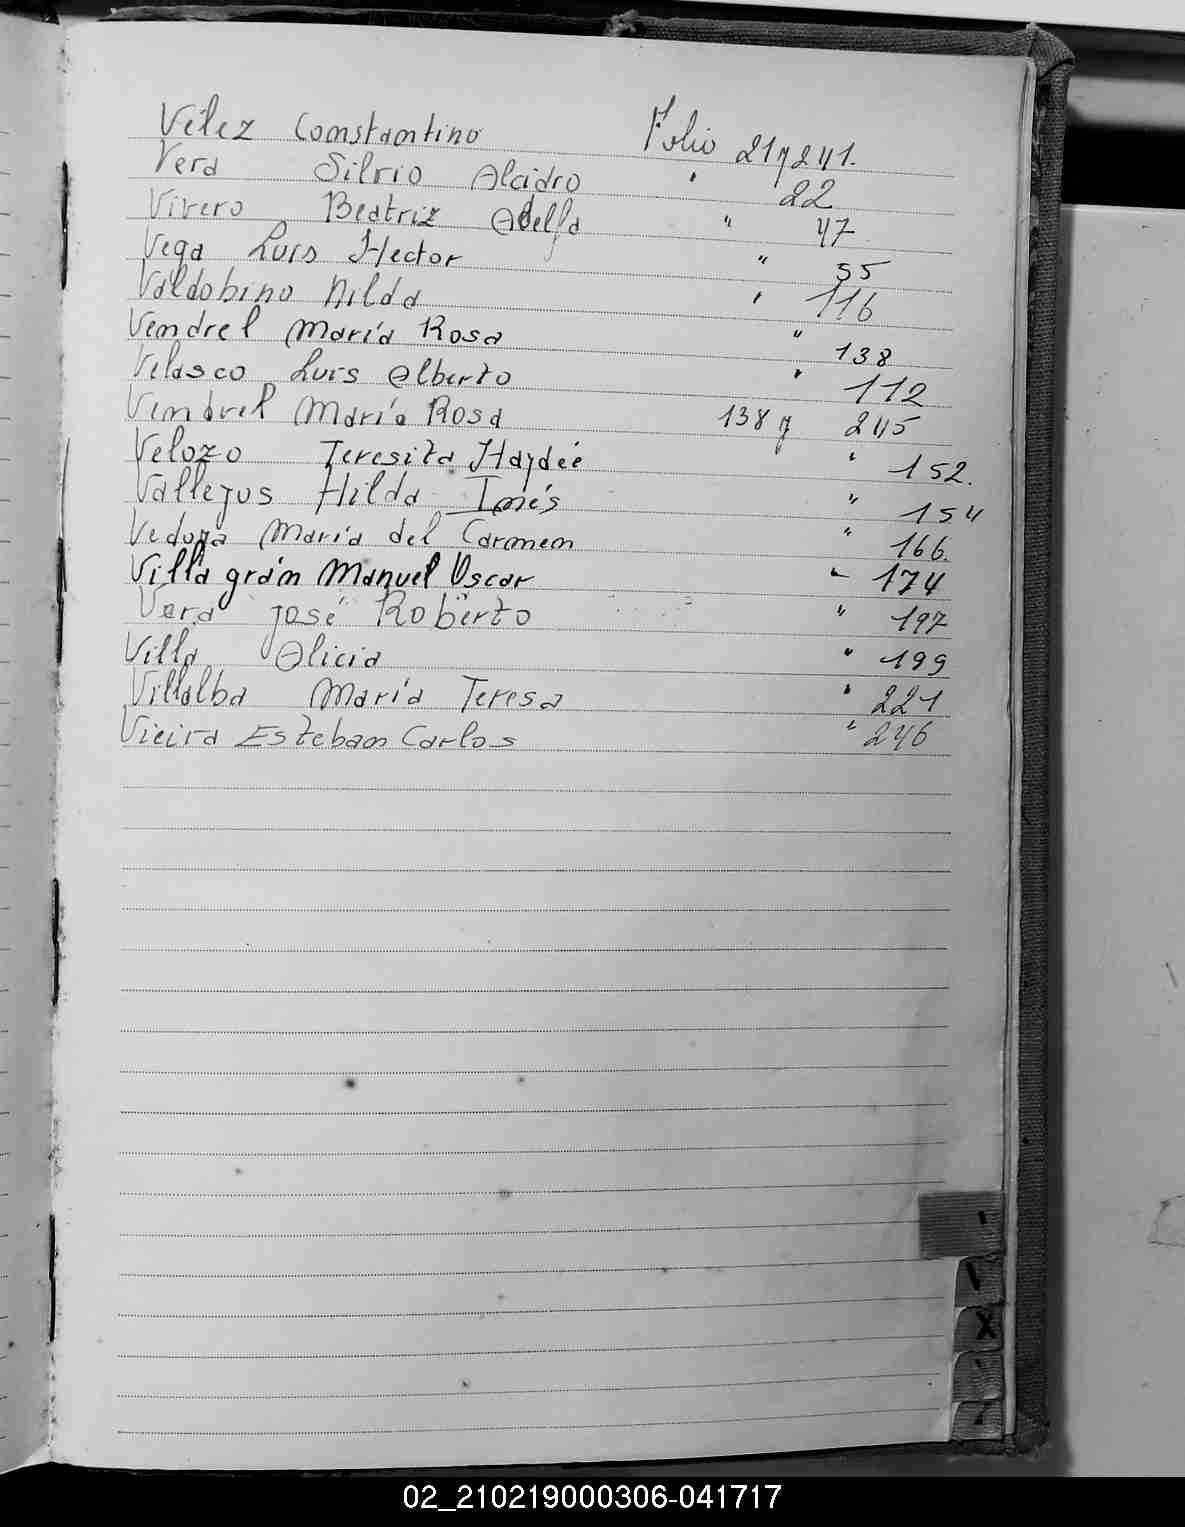 Vélez Constantino Folio 21 y 241.
Vera Silvio Alcidro " 22
Vivero Beatriz Adella " 47
Vega Luis Hector " 55
Valdobino Nilda " 116
Vendrel María Rosa " 138
Velasco Luis Alberto " 112
Vendrel María Rosa 138 y 245
Velozo Teresita Haydée " 152.
Vallejos Hilda Inés " 154
Vedoya María del Carmen " 166.
Villagrán Manuel Oscar " 174
Vera José Roberto " 197
Villa Alicia " 199
Villalba María Teresa " 221
Vieira Esteban Carlos " 246
X
02_210219000306-041717